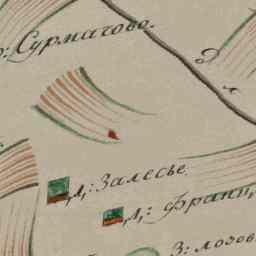 о: Сурмачово.
Д
д,: Залесье.
д,: Франи,
З: лозов